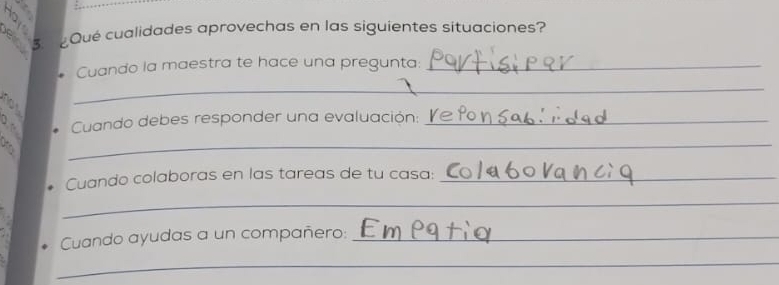 3. ¿Qué cualidades aprovechas en las siguientes situaciones?
• Cuando la maestra te hace una pregunta: Partisipar
• Cuando debes responder una evaluación: reponsabiidad
• Cuando colaboras en las tareas de tu casa: Colaborancia
• Cuando ayudas a un compañero: Empatia